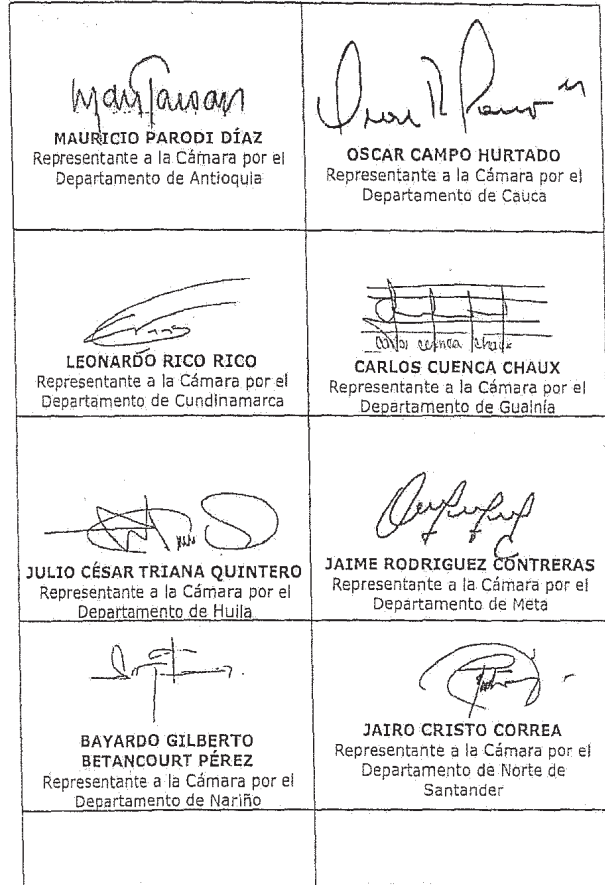 MAURICIO PARODI DÍAZ
Representante a la Cámara por el
Departamento de Antioquia
OSCAR CAMPO HURTADO
Representante a la Cámara por el
Departamento de Cauca
LEONARDO RICO RICO
Representante a la Cámara por el
Departamento de Cundinamarca
carlos cuenca chaux
CARLOS CUENCA CHAUX
Representante a la Cámara por el
Departamento de Guainía
JULIO CÉSAR TRIANA QUINTERO
Representante a la Cámara por el
Departamento de Huila
JAIME RODRIGUEZ CONTRERAS
Representante a la Cámara por el
Departamento de Meta
BAYARDO GILBERTO
BETANCOURT PÉREZ
Representante a la Cámara por el
Departamento de Nariño
JAIRO CRISTO CORREA
Representante a la Cámara por el
Departamento de Norte de
Santander